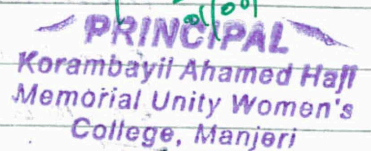 PRINCIPAL
Korambayil Ahamed Haji
Memorial Unity Women's
College, Manjeri